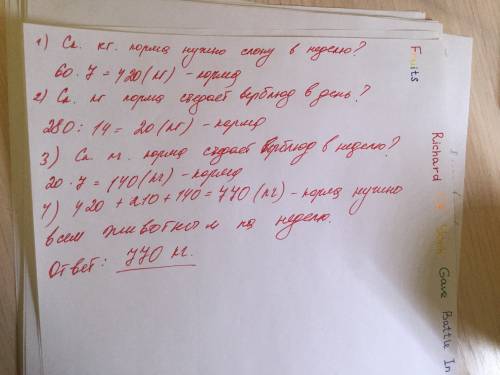 1) Ск. кг. корма нужно слону в неделю?
60 · 7 = 420 (кг) - корма
2) Ск. кг корма съедает верблюд в день?
280 : 14 = 20 (кг) - корма
3) Ск. кг. корма съедает верблюд в неделю?
20 · 7 = 140 (кг) - корма
4) 420 + 210 + 140 = 770 (кг) - корма нужно
всем животным на неделю.
Ответ: 770 кг.
Fruits
Richard Of York Gave Battle In